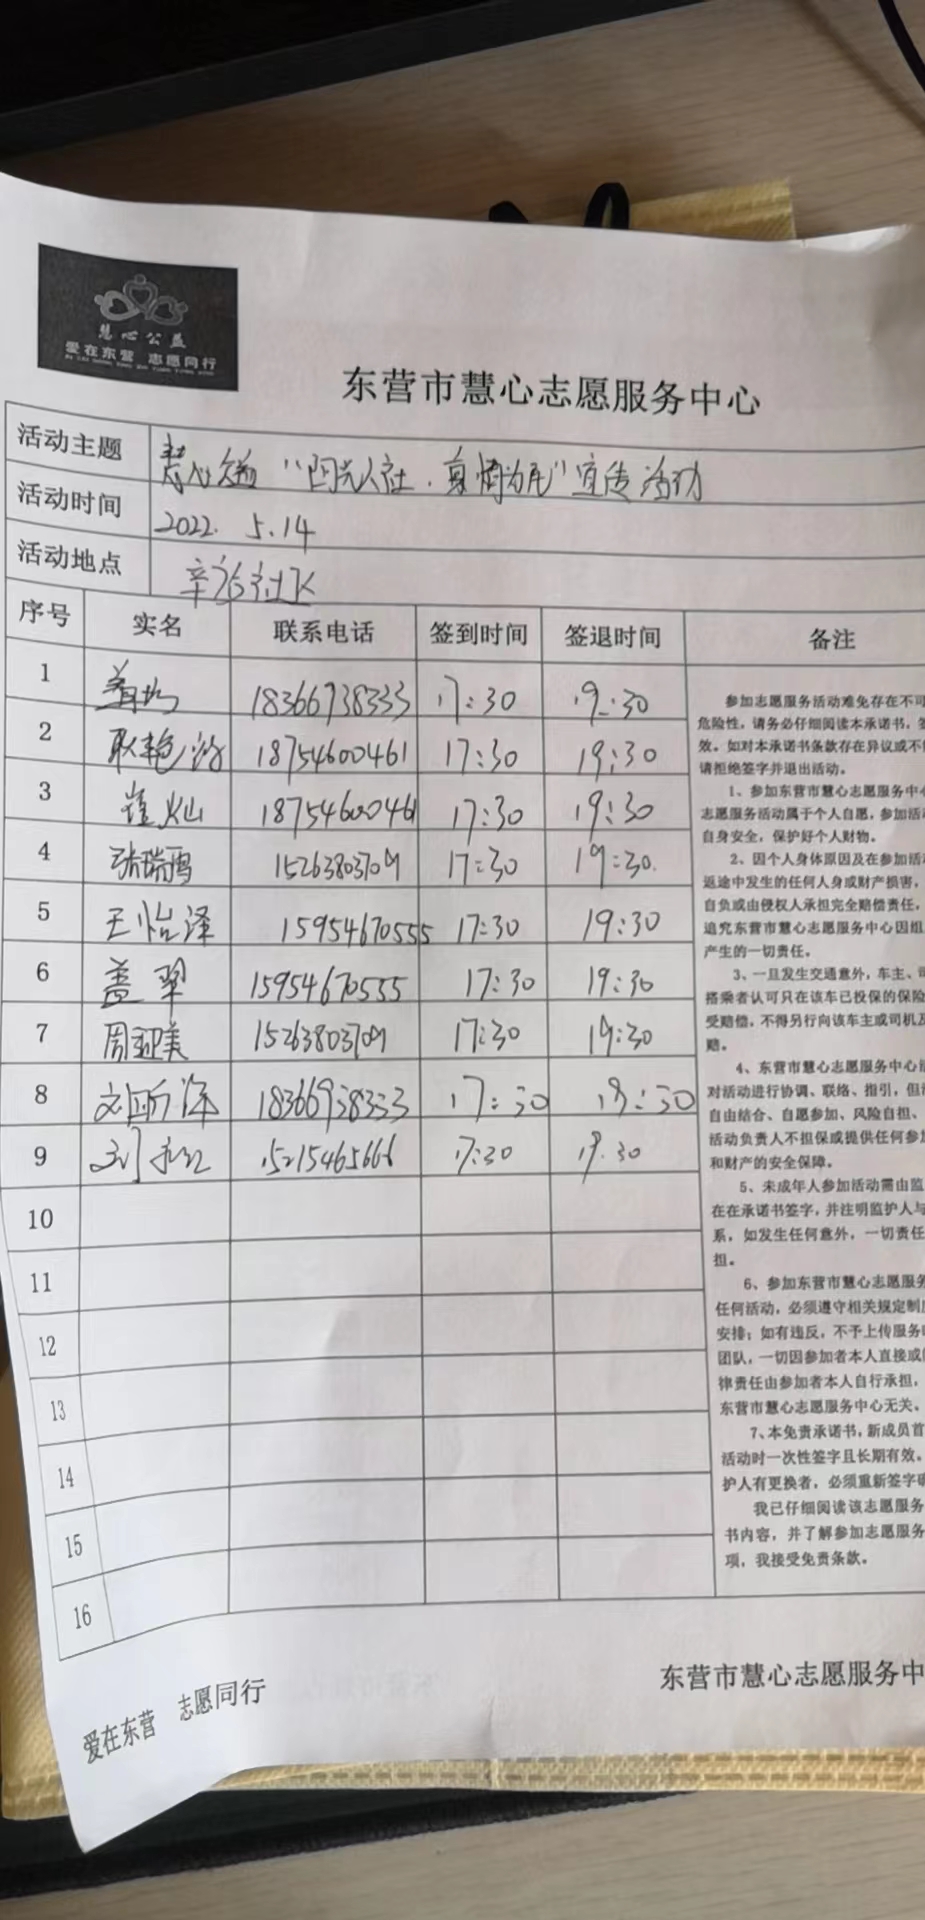 慧心公益
爱在东营 志愿同行
东营市慧心志愿服务中心
活动主题 慧心公益“阳光人社.真情为民”宣传活动
活动时间 2022. 5.14
活动地点
序号 实名 联系电话 签到时间 签退时间 备注
1 18366938333 17:30 19:30
2 耿艳 18754600461 17:30 19:30
3 崔灿 18754600461 17:30 19:30
4 张瑞雪 15263803709 17:30 19:30.
5 王怡泽 15954670555 17:30 19:30
6 盖翠 15954670555 17:30 19:30
7 周亚美 15263803709 17:30 19:30
8 刘昕泽 18366938333 17:30 19:30
9 15215465666 17:30 19.30
10
11
12
13
14
15
16
参加志愿服务活动难免存在不可
危险性，请务必仔细阅读本承诺书，签
效。如对本承诺书条款存在异议或不
请拒绝签字并退出活动。
1、参加东营市慧心志愿服务中
志愿服务活动属于个人自愿，参加活
自身安全，保护好个人财物。
2、因个人身体原因及在参加活
返途中发生的任何人身或财产损害，
自负或由侵权人承担完全赔偿责任，
追究东营市慧心志愿服务中心因组
产生的一切责任。
3、一旦发生交通意外，车主、司
搭乘者认可只在该车已投保的保险
受赔偿，不得另行向该车主或司机及
赔。
4、东营市慧心志愿服务中心
对活动进行协调、联络、指引，但
自由结合、自愿参加、风险自担、
活动负责人不担保或提供任何参加
和财产的安全保障。
5、未成年人参加活动需由监
在在承诺书签字，并注明监护人与
系，如发生任何意外，一切责任
担。
6、参加东营市慧心志愿服务
任何活动，必须遵守相关规定制度
安排；如有违反，不予上传服务时
团队，一切因参加者本人直接或
律责任由参加者本人自行承担，
东营市慧心志愿服务中心无关。
7、本免责承诺书，新成员首
活动时一次性签字且长期有效。
护人有更换者，必须重新签字
我已仔细阅读该志愿服务
书内容，并了解参加志愿服务
项，我接受免责条款。
爱在东营 志愿同行
东营市慧心志愿服务中